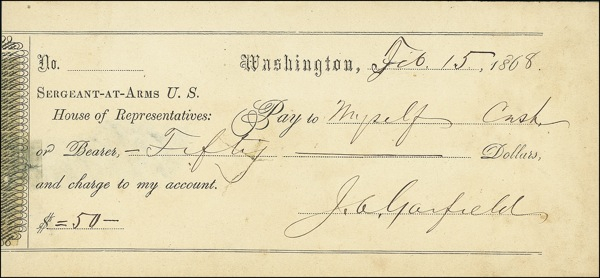 No. Washington, Feb. 15, 1868.
Sergeant-at-Arms U. S.
House of Representatives: Pay to Myself Cash
or Bearer, – Fifty Dollars,
and charge to my account.
$ = 50 – J. A. Garfield